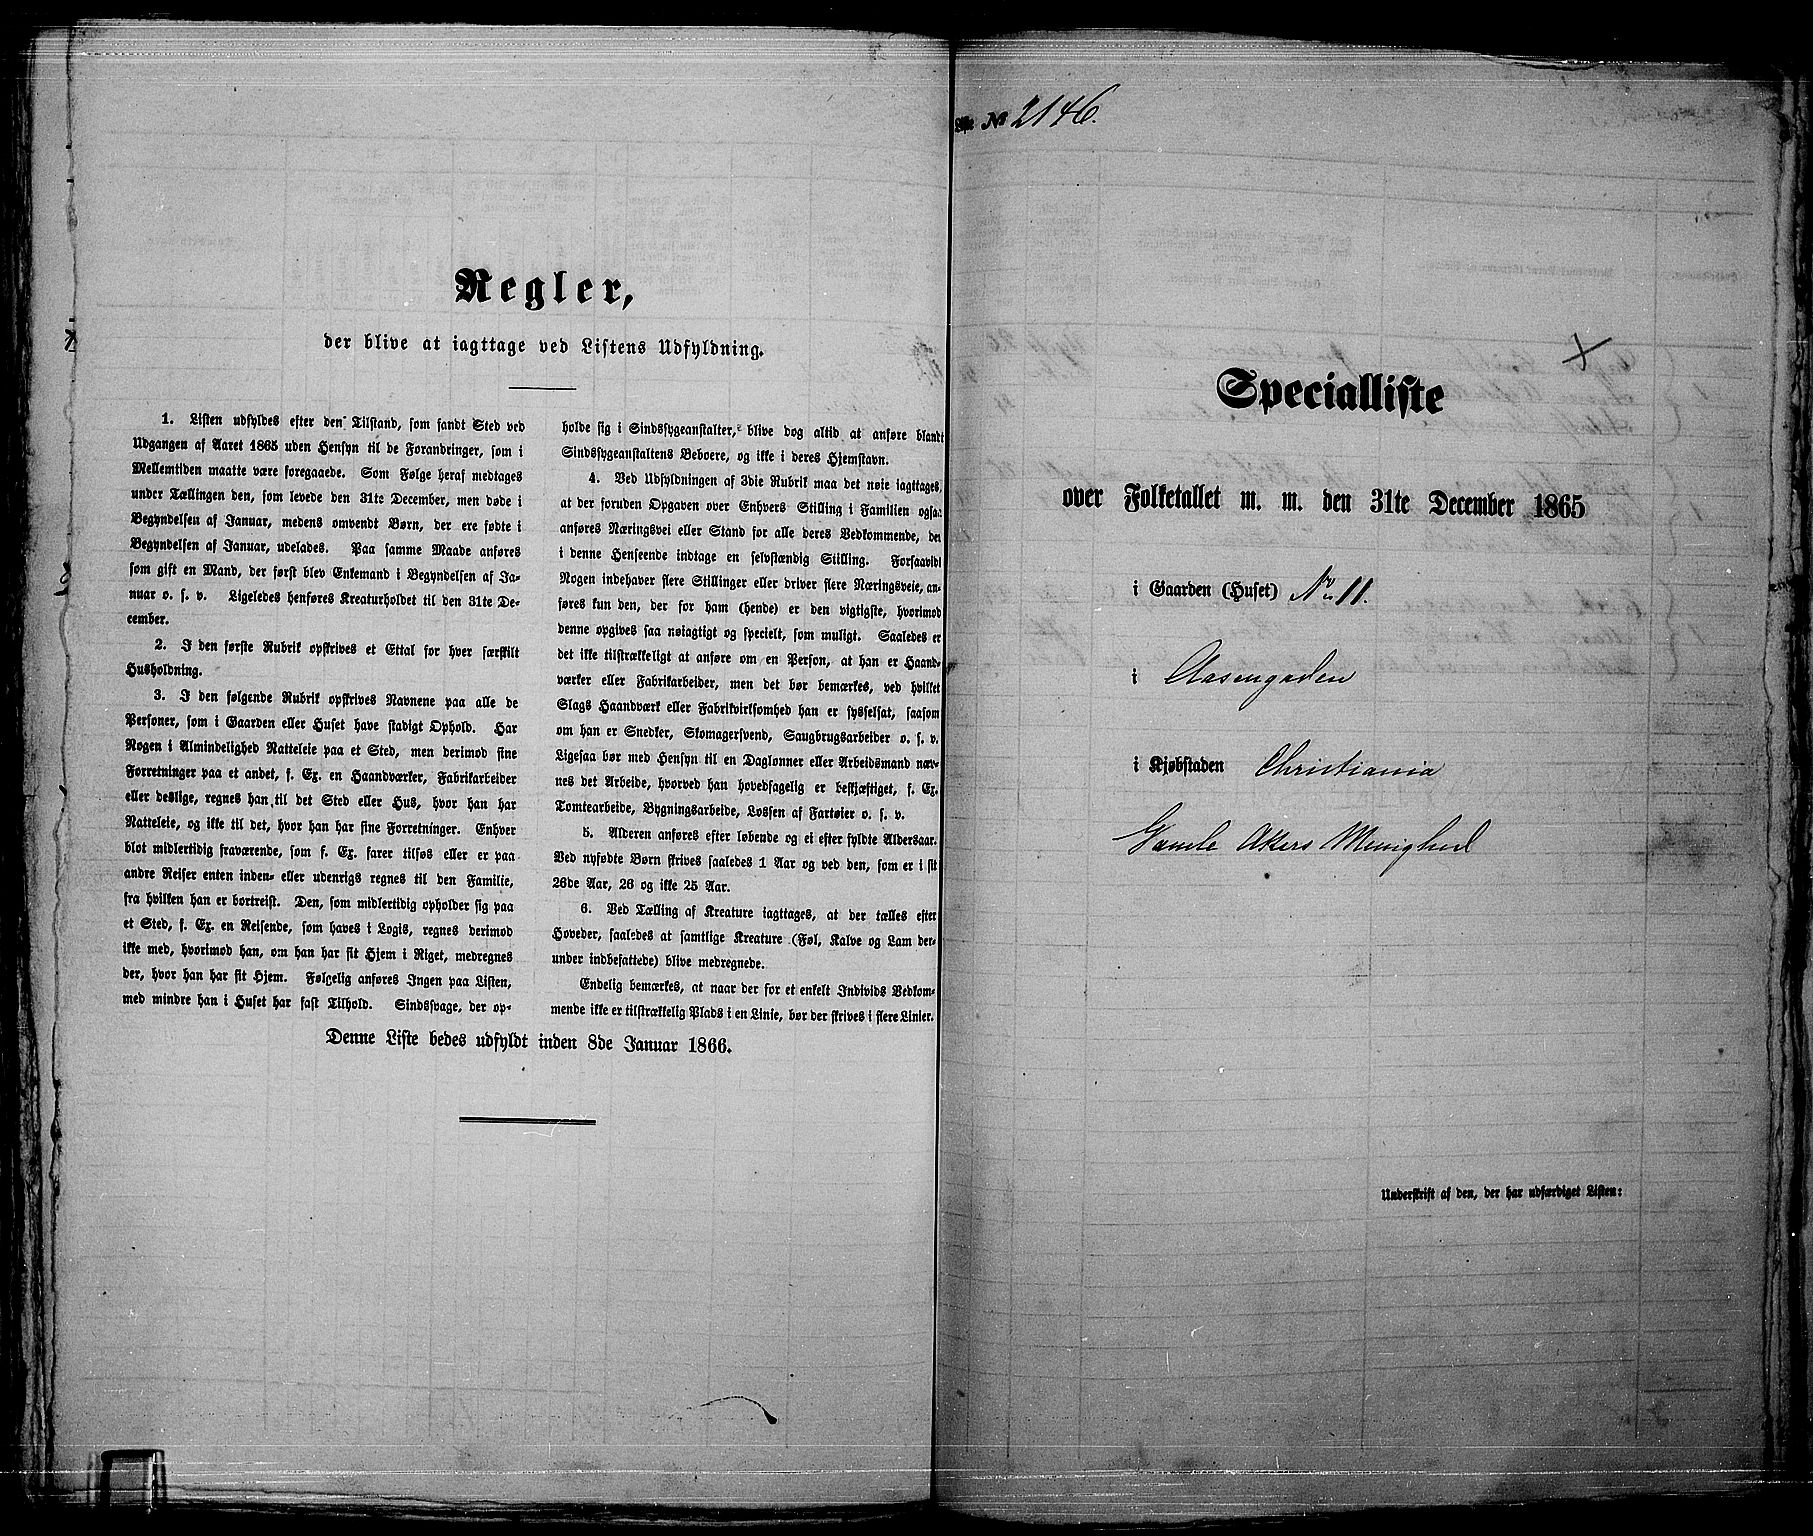 Regler,
der blive at iagttage ved Listens Udfyldning.
1. Listen udfyldes efter den Tilstand, som fandt Sted ved
Udgangen af Aaret 1865 uden Hensyn til de Forandringer, som i
Mellemtiden maatte være foregaaede. Som Følge heraf medtages
under Tællingen den, som levede den 31te December, men døde i
Begyndelsen af Januar, medens omvendt Børn, der ere fødte i
Begyndelsen af Januar, udelades. Paa samme Maade anføres
som gift en Mand, der først blev Enkemand i Begyndelsen af Ja-
nuar o. s. v. Ligeledes henføres Kreaturholdet til den 31te De-
cember.
2. I den første Rubrik opskrives et Ettal for hver særskilt
Husholdning.
3. I den følgende Rubrik opskrives Navnene paa alle de
Personer, som i Gaarden eller Huset have stadigt Ophold. Har
Nogen i Almindelighed Natteleie paa et Sted, men derimod sine
Forretninger paa et andet, f. Ex. en Haandværker, Fabrikarbeider
eller deslige, regnes han til det Sted eller Hus, hvor han har
Natteleie, og ikke til det, hvor han har sine Forretninger. Enhver
blot midlertidig fraværende, som f. Ex. farer tilsøs eller er paa
andre Reiser enten inden- eller udenrigs regnes til den Familie,
fra hvilken han er bortreist. Den, som midlertidig opholder sig paa
et Sted, f. Ex. en Reisende, som haves i Logis, regnes derimod
ikke med, hvorimod han, om han har sit Hjem i Riget, medregnes
der, hvor han har sit Hjem. Følgelig anføres Ingen paa Listen,
med mindre han i Huset har fast Tilhold. Sindssvage, der op-
holde sig i Sindssygeanstalter, blive dog altid at anføre blandt
Sindssygeanstaltens Beboere, og ikke i deres Hjemstavn.
4. Ved Udfyldningen af 3die Rubrik maa det nøie iagttages,
at der foruden Opgaven over Enhvers Stilling i Familien ogsaa
anføres Næringsvei eller Stand for alle deres Vedkommende, der
i denne Henseende indtage en selvstændig Stilling. Forsaavidt
Nogen indehaver flere Stillinger eller driver flere Næringsveie, an-
føres kun den, der for ham (hende) er den vigtigste, hvorimod
denne opgives saa nøiagtigt og specielt, som muligt. Saaledes er
det ikke tilstrækkeligt at anføre om en Person, at han er Haand-
værker eller Fabrikarbeider, men det bør bemærkes, ved hvilket
Slags Haandværk eller Fabrikvirksomhed han er sysselsat, saasom
om han er Snedker, Skomagersvend, Saugbrugsarbeider o. s. v.
Ligesaa bør med Hensyn til en Daglønner eller Arbeidsmand næv-
nes det Arbeide, hvorved han hovedsagelig er beskjæftiget, f. Ex.
Tomtearbeide, Bygningsarbeide, Lossen af Fartøier o. s. v.
5. Alderen anføres efter løbende og ei efter fyldte Aldersaar.
Ved nyfødte Børn skrives saaledes 1 Aar og ved den, som er i sit
26de Aar, 26 og ikke 25 Aar.
6. Ved Tælling af Kreature iagttages, at der tælles efter
Hoveder, saaledes at samtlige Kreature (Føl, Kalve og Lam der-
under indbefattede) blive medregnede.
Endelig bemærkes, at naar der for et enkelt Individs Vedkom-
mende ikke er tilstrækkelig Plads i en Linie, bør der skrives i flere Linier.
Denne Liste bedes udfyldt inden 8de Januar 1866.
№ 2146.
Specialliste
over Folketallet m. m. den 31te December 1865
i Gaarden (Huset) No 11.
i Aasengaden
i Kjøbstaden Christiania
Gamle Akers Menighed
Underskrift af den, der har udfærdiget Listen: